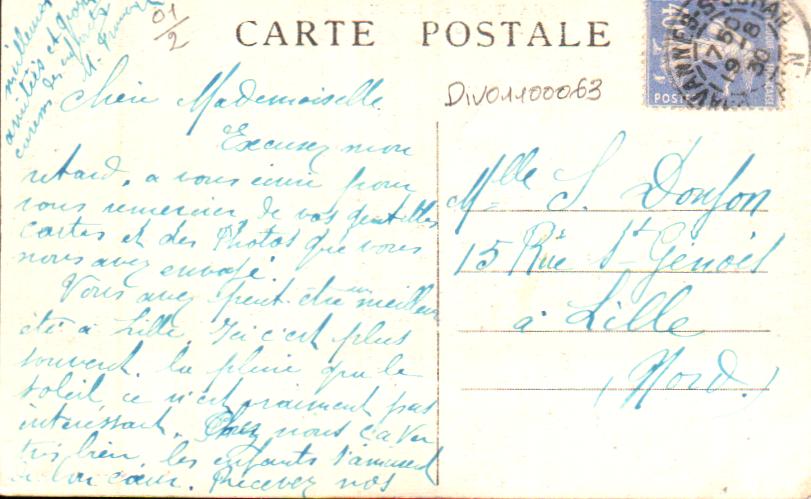 01
2
CARTE POSTALE
Div01100063
POSTES
17 50
19 - 8
30
Chère Mademoiselle
Excusez mon
retard, a vous écrire pour
vous remercier, de vos gentilles
cartes et des Photos que vous
nous avez envoyé.
Vous avez peut être un meilleur
été à Lille. Ici c'est plus
souvent la pluie que le
soleil ce n'est vraiment pas
intéressant. Chez nous ça va
très bien, les enfants s'amusent
cœur. Recevez nos
meilleures
amitiés et
caresses des enfants
M.
Mlle S. Donfon
15 Rue St Genois
à Lille
(Nord)